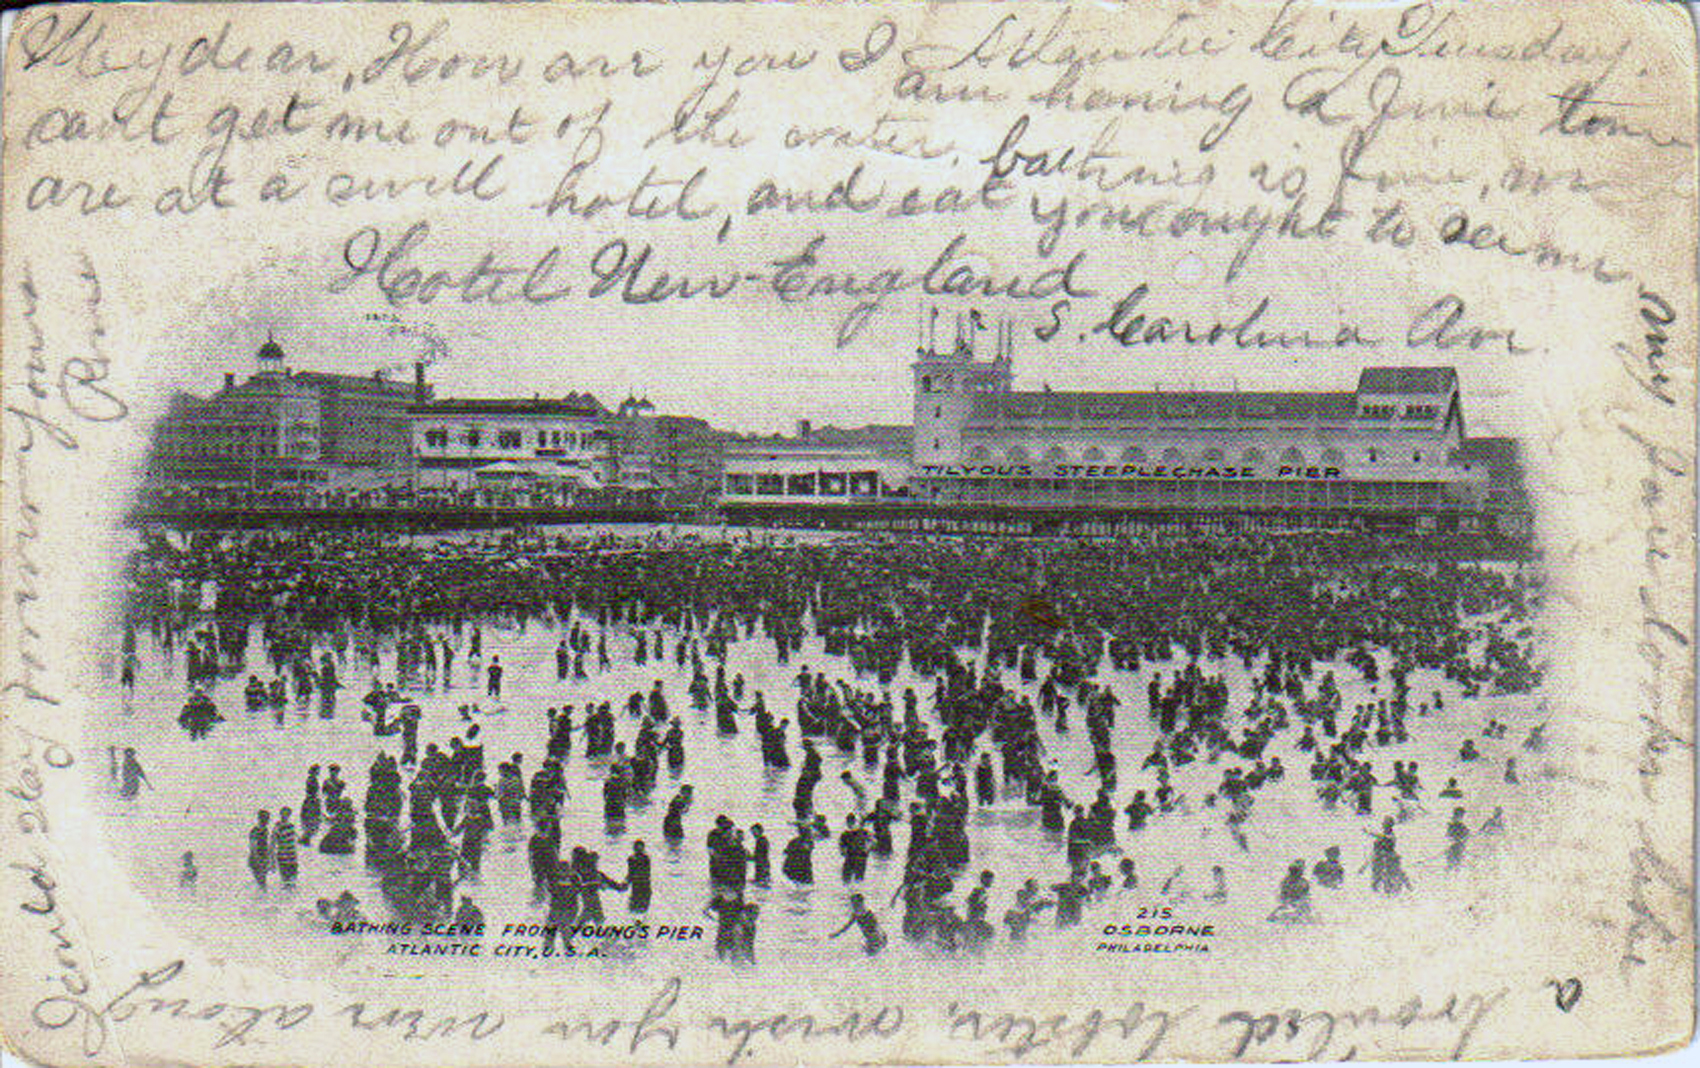 Atlantic City Tuesday.
My dear, How are you I am having a fine time
cant get me out of the water, bathing is fine, we
are at a swell hotel, and eat you ought to see me
Hotel New England
S. Carolina Ave.
my face looks like
a broiled lobster, wish you were along
I could stay forever yours
TILYOU'S STEEPLECHASE PIER
BATHING SCENE FROM YOUNG'S PIER
ATLANTIC CITY, U.S.A.
215
OSBORNE
PHILADELPHIA